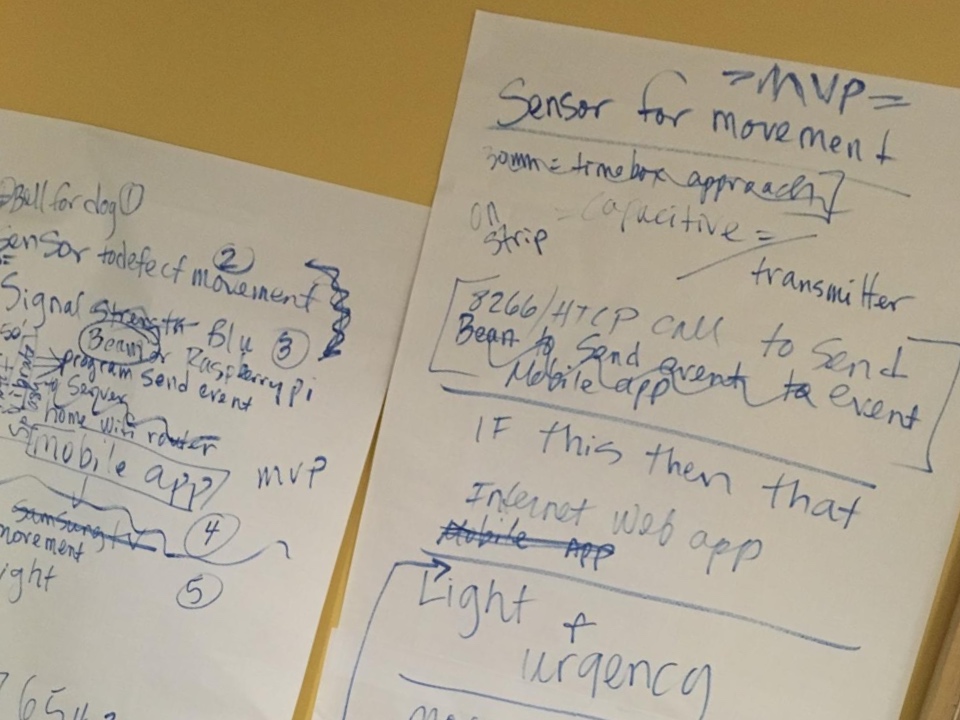 Bell for dog ①
Sensor to detect movement ②
Signal Strength Blu ③
Bean or Raspberry pi
program send event
to Server
home wifi router
mobile app mvp
samsung tv ④
movement
ight ⑤
= MVP =
Sensor for movement
30mm = timebox approach
on = capacitive =
strip
transmitter
8266/HTCP call to send
Bean to Send event to event
Mobile app
IF this then that
Internet web app
Mobile App
Light +
urgency